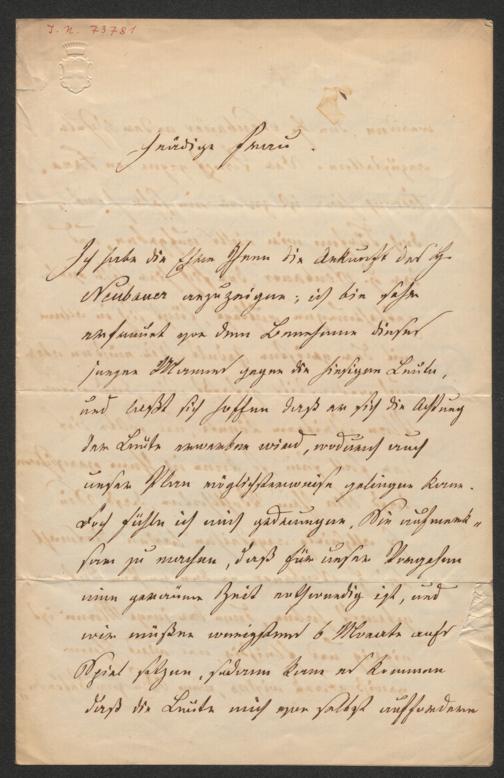 I. N. 73781
Gnädige Frau.
Ich habe die Ehre Ihnen die Ankunft des H.
Neubauer anzuzeigen; ich bin sehr
erfreuet von dem Benehmen dieses
jungen Mannes gegen die hiesigen Leute,
und laßt sich hoffen daß er sich die Achtung
der Leute erwerben wird, wodurch auch
unser Plan möglicherweise gelingen kann.
Doch fühle ich mich gedrungen, Sie aufmerk-
sam zu machen, daß für unser Vorgehen
eine geraume Zeit nothwendig ist, und
wir müßen wenigstens 6 Monate aufs
Spiel setzen, sodann kann es kommen
daß die Leute mich von selbst auffordern